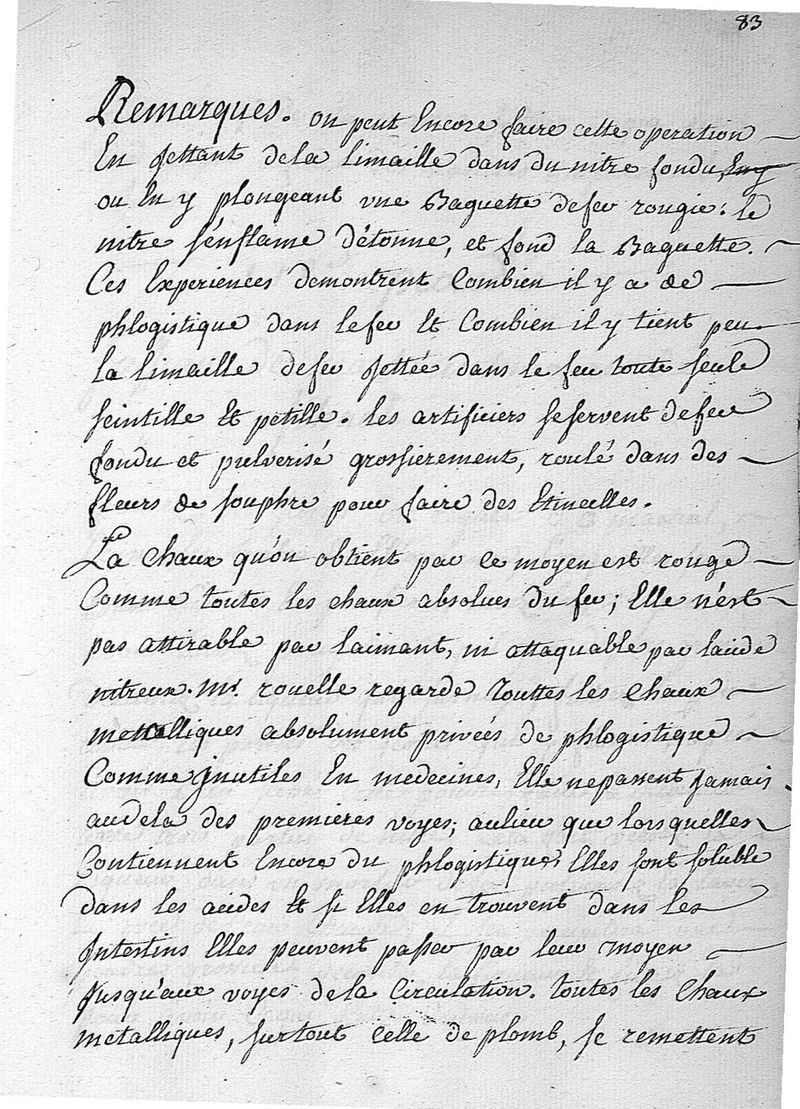 83
Remarques. on peut Encore faire cette operation
En Jettant de la limaille dans du nitre fondu,
ou En y plongeant une Baguette de fer rougie: le
nitre s'enflame détonne, et fond la Baguette.
Ces Experiences demontrent Combien il y a de
phlogistique dans le fer Et Combien il y tient peu.
la limaille de fer Jettée dans le feu toute seule
scintille Et petille. les artificiers se servent de fer
fondu et pulverisé grossierement, roulé dans des
fleurs de souphre pour faire des Etincelles.
La Chaux qu'on obtient par ce moyen est rouge
Comme toutes les chaux absolues du fer; Elle n'est
pas attirable par laimant, ni attaquable par lacide
nitreux. Mr. rouelle regarde touttes les Chaux
metalliques absolument privées de phlogistique
Comme Inutiles En medecines, Elle ne passent Jamais
audela des premieres voyes; aulieu que lorsquelles
Contiennent Encore du phlogistique, Elles sont soluble
dans les acides Et si Elles en trouvent dans les
Intestins Elles peuvent passer par leur moyen
Jusqu'aux voyes de la Circulation. toutes les Chaux
metalliques, surtout Celle de plomb, se remettent